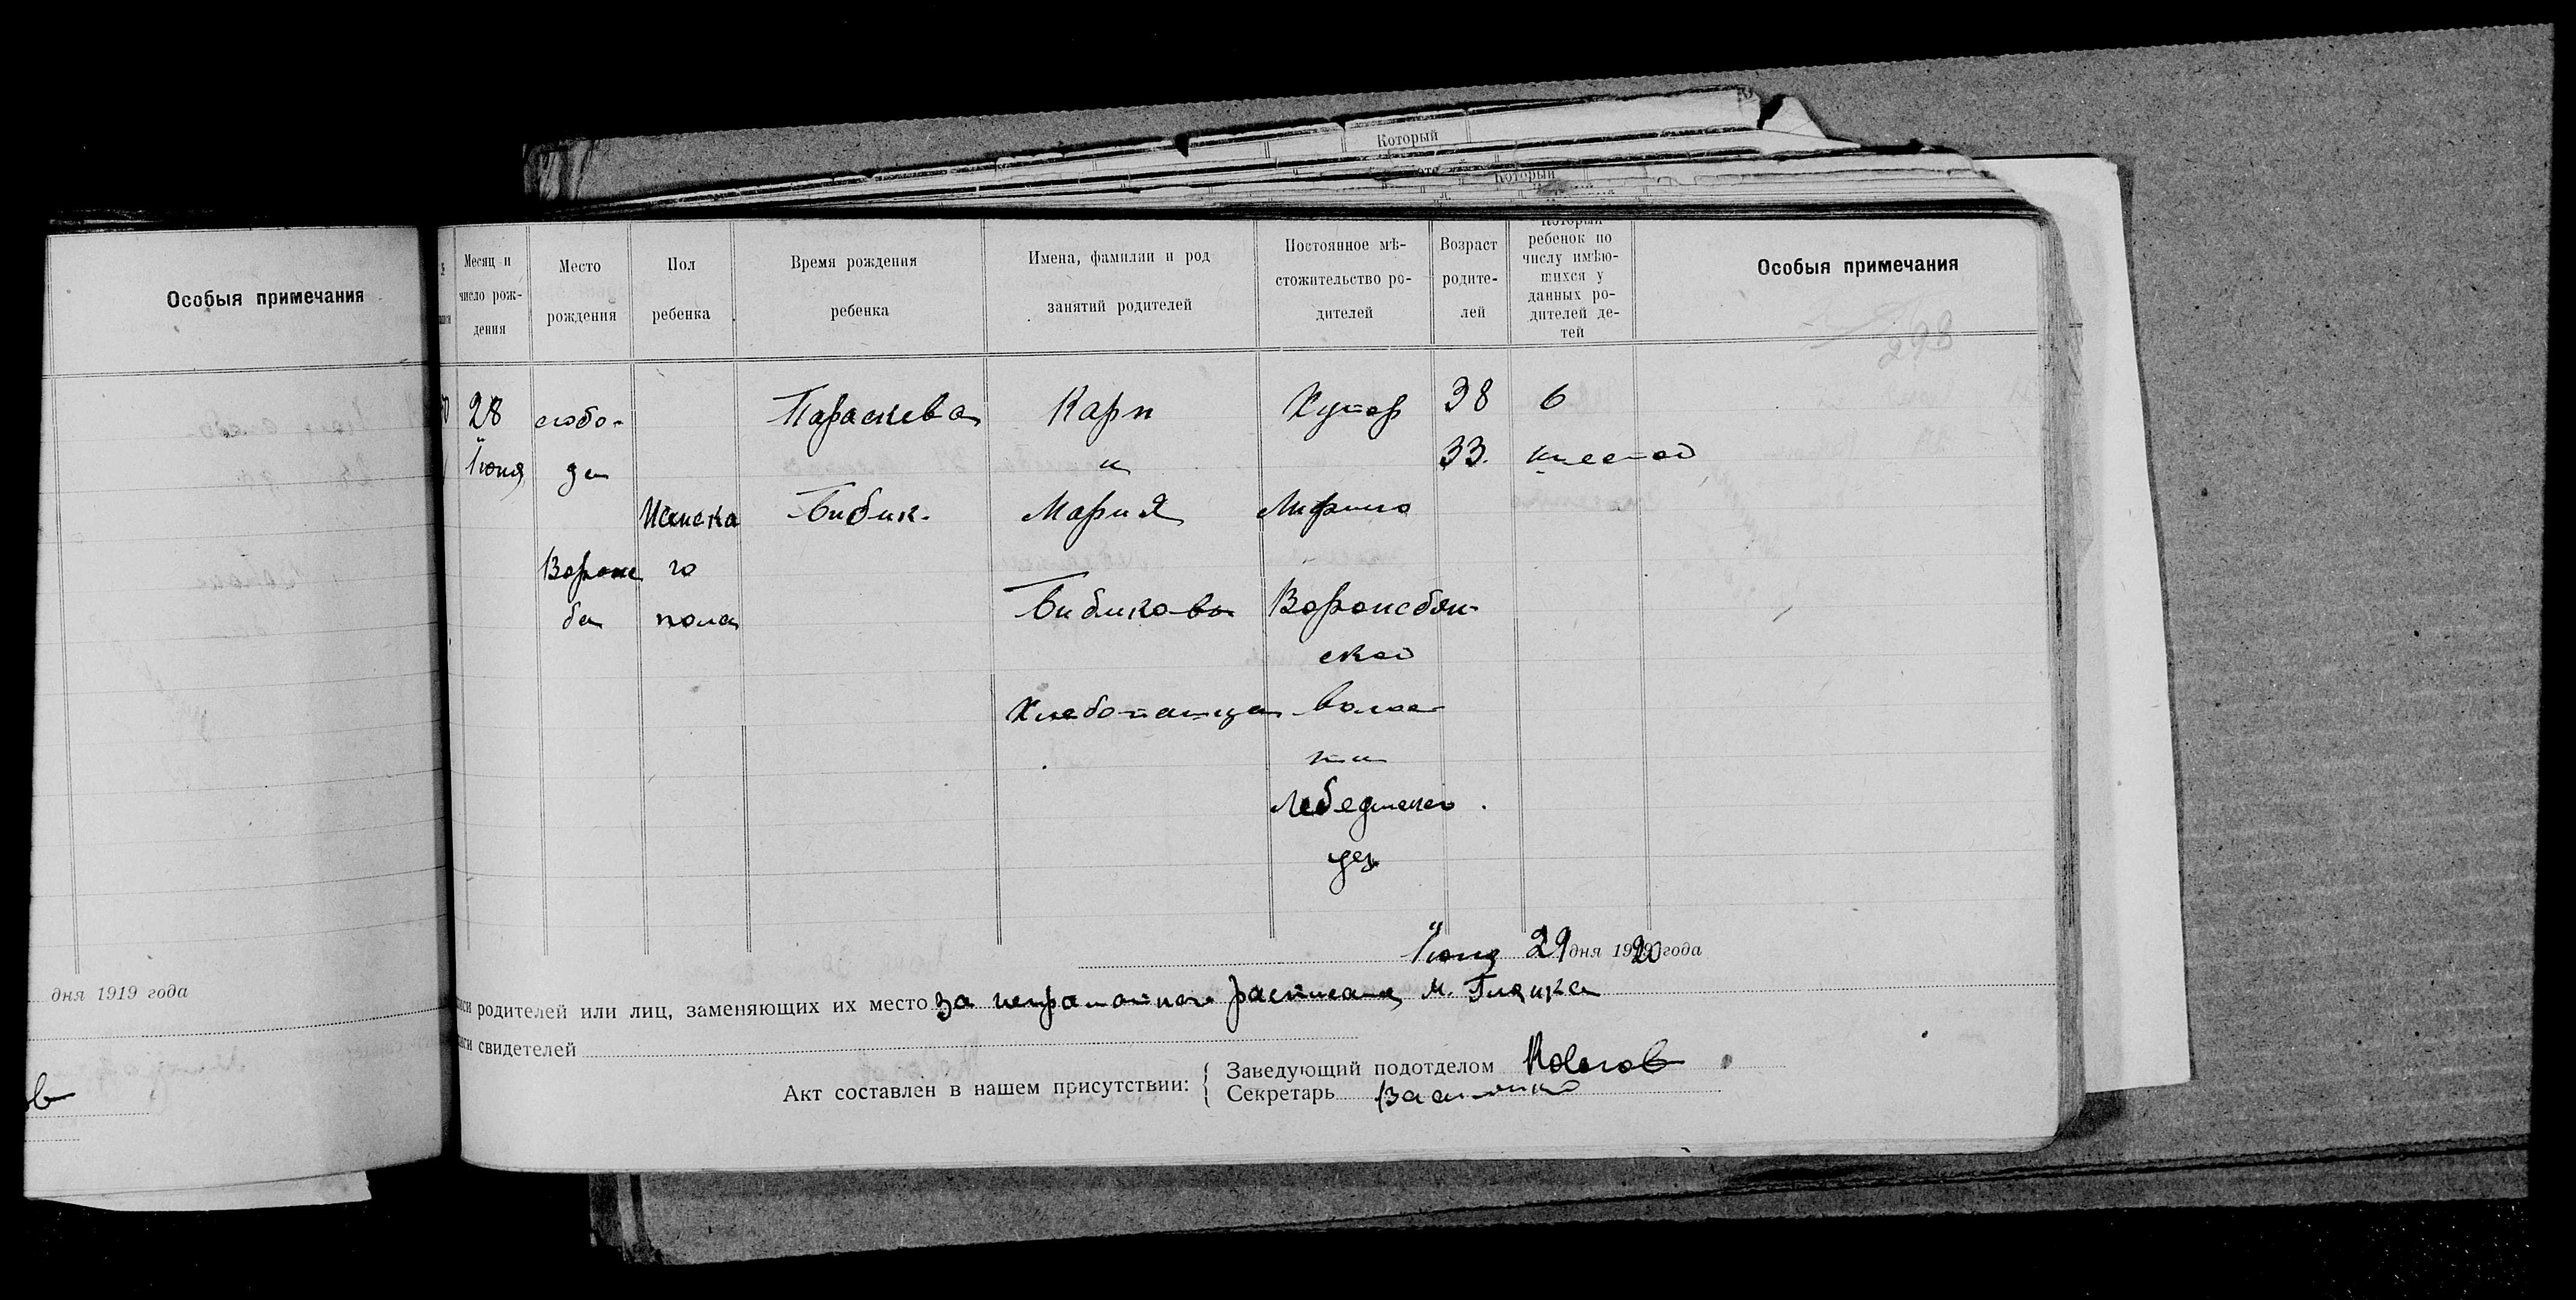 Который
Который
Особыя примечания
дня 1919 года
Месяц и число рож-дения
Место рождения
Пол ребенка
Время рождения ребенка
Имена, фамилии и род занятий родителей
Постоянное мѣ-стожительство ро-дителей
Возраст родите-лей
Который ребенок по числу имѣю-щихся у данных ро-дителей де-тей
Особыя примечания
298
28
Іюня
слобо-
да
Вороже
ба
Женска
го
пола
Параскева
Бибик.
Карп
и
Мария
Бибиковы
Хлебопашцы
Хутор
Ворожбян-
ской
волос-
ти
Лебединского
уез
38
33.
6
шестой
Іюня 29 дня 1920 года
родителей или лиц, заменяющих их место за неграмотного расписался М.
свидетелей
Акт составлен в нашем присутствии:
Заведующий подотделом
Секретарь